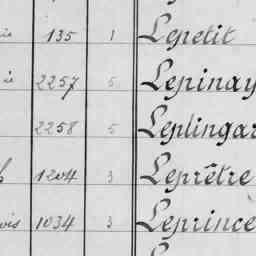 135 1 Lepetit
2257 5 Lepinay
2258 5 Leplingar
1204 3 Leprêtre
1034 3 Leprince